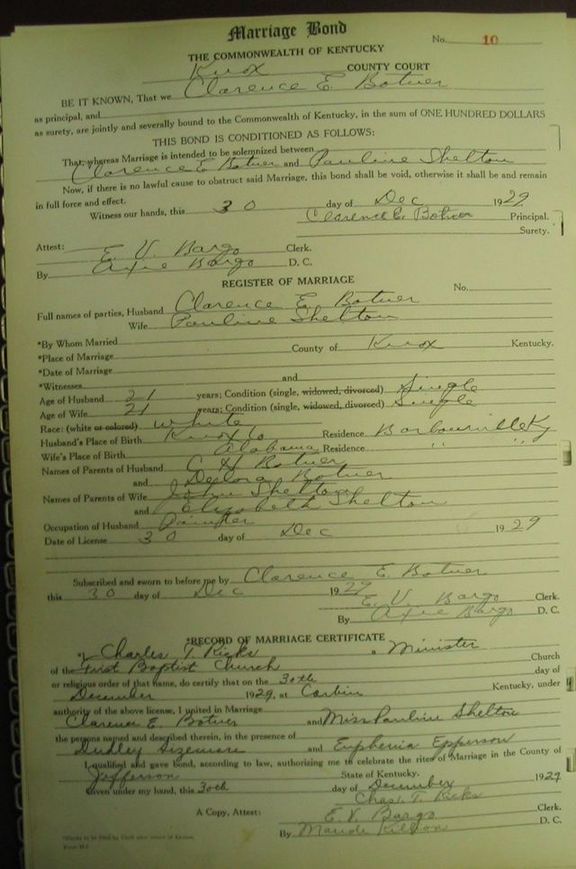 Marriage Bond
No. 10
THE COMMONWEALTH OF KENTUCKY
Knox COUNTY COURT
BE IT KNOWN, That we Clarence E. Botner
as principal, and
as surety, are jointly and severally bound to the Commonwealth of Kentucky, in the sum of ONE HUNDRED DOLLARS
THIS BOND IS CONDITIONED AS FOLLOWS:
That, whereas Marriage is intended to be solemnized between
Clarence E Botner and Pauline Shelton
Now, if there is no lawful cause to obstruct said Marriage, this bond shall be void, otherwise it shall be and remain
in full force and effect.
Witness our hands, this 30 day of Dec 1929
Clarence E. Botner Principal.
Surety.
Attest: E. V. Bargo Clerk.
By Axie Bargo D. C.
REGISTER OF MARRIAGE
No.
Full names of parties, Husband Clarence E. Botner
Wife Pauline Shelton
*By Whom Married
*Place of Marriage County of Knox Kentucky.
*Date of Marriage
*Witnesses and
Age of Husband 21 years; Condition (single, widowed, divorced) Single
Age of Wife 21 years; Condition (single, widowed, divorced) Single
Race: (white or colored) White
Husband's Place of Birth Knox Co Residence Barbourville Ky
Wife's Place of Birth Alabama Residence " "
Names of Parents of Husband C H Botner
and Delora Botner
Names of Parents of Wife John Shelton
and Elizabeth Shelton
Occupation of Husband Painter
Date of License 30 day of Dec 1929
Subscribed and sworn to before me by Clarence E. Botner
this 30 day of Dec 1929
E. V. Bargo Clerk.
By Axie Bargo D. C.
*RECORD OF MARRIAGE CERTIFICATE
I, Charles T. Ricks a Minister
of the First Baptist Church Church
or religious order of that name, do certify that on the 30th day of
December 1929, at Corbin Kentucky, under
authority of the above license, I united in Marriage
Clarence E. Botner and Miss Pauline Shelton
the persons named and described therein, in the presence of
Dudley Sizemore and Euphenia Epperson
I qualified and gave bond, according to law, authorizing me to celebrate the rites of Marriage in the County of
Jefferson State of Kentucky.
Given under my hand, this 30th day of December 1929
Chas. T. Ricks
A Copy, Attest: E. V. Bargo Clerk.
By Maude D. C.